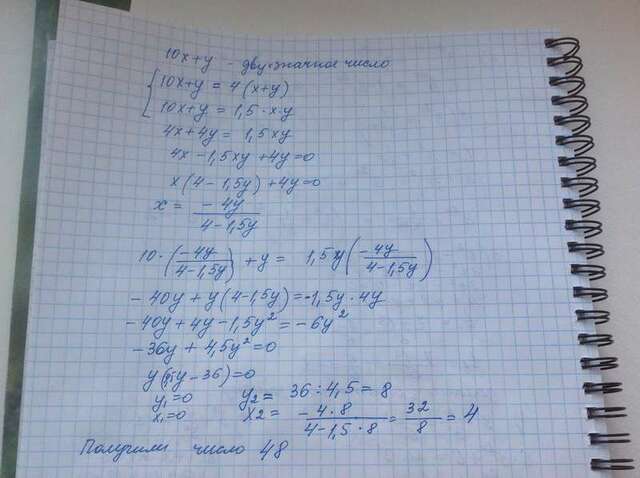 10x+y - двузначное число
10x+y = 4(x+y)
10x+y = 1,5·x·y
4x+4y = 1,5xy
4x-1,5xy+4y=0
x(4-1,5y)+4y=0
x = -4y / 4-1,5y
10·(-4y / 4-1,5y)+y = 1,5y(-4y / 4-1,5y)
-40y+y(4-1,5y)=-1,5y·4y
-40y+4y-1,5y²=-6y²
-36y+4,5y²=0
y( y-36)=0
y₁=0 y₂= 36:4,5=8
x₁=0 x2= -4·8 / 4-1,5·8 = 32 / 8 = 4
Получили число 48